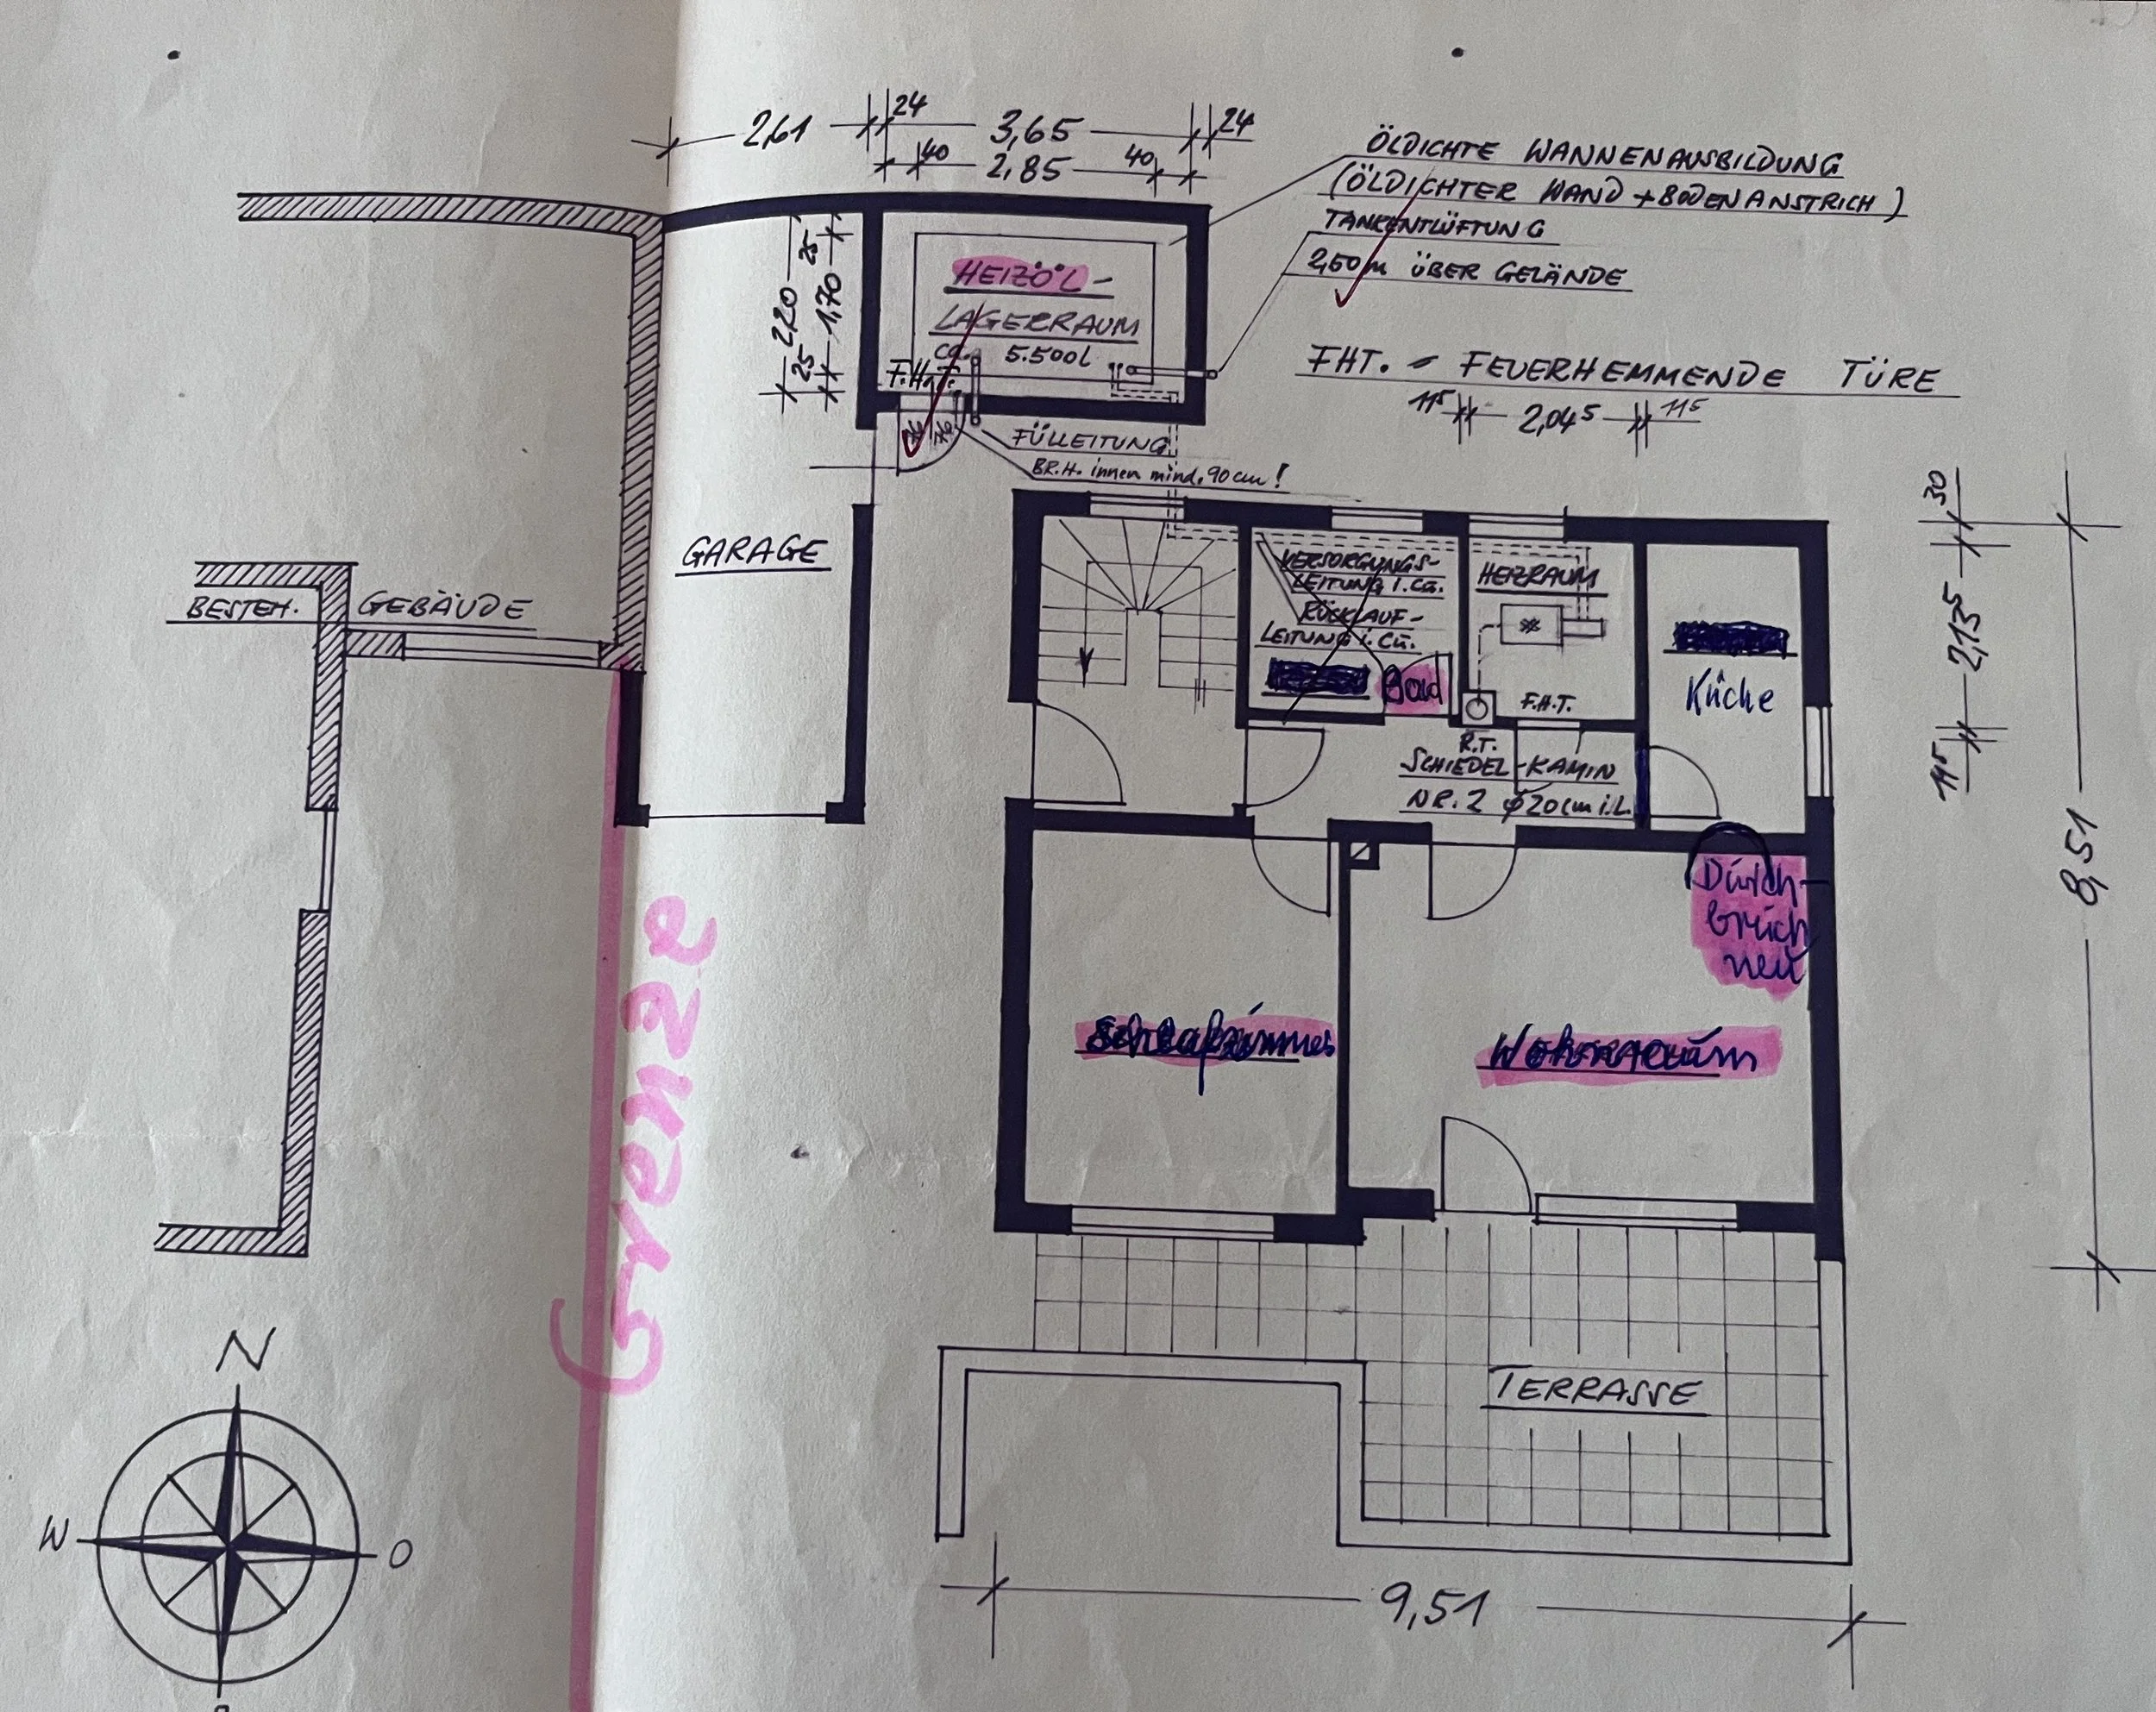 24
2,61
3,65
24
40
2,85
40
ÖLDICHTE WANNENAUSBILDUNG
(ÖLDICHTER WAND + BODENANSTRICH)
TANKENTLÜFTUNG
2,50m ÜBER GELÄNDE
25
2,20
1,70
25
HEIZÖL-
LAGERRAUM
ca. 5.500l
F.H.T.
76
76
FHT. = FEUERHEMMENDE TÜRE
11⁵
2,04⁵
11⁵
FÜLLEITUNG
BR.H. innen mind. 90cm!
GARAGE
BESTEH. GEBÄUDE
VERSORGUNGS-
LEITUNG i. Cu.
RÜCKLAUF-
LEITUNG i. Cu.
Bad
HEIZRAUM
F.H.T.
Küche
R.T.
SCHIEDEL-KAMIN
NR. 2 φ20cm i.L.
30
2,13⁵
11⁵
8,51
Dürch-
brüch
neu
Grenze
Schlafzimmer
Wohnraum
TERRASSE
N
W
O
9,51